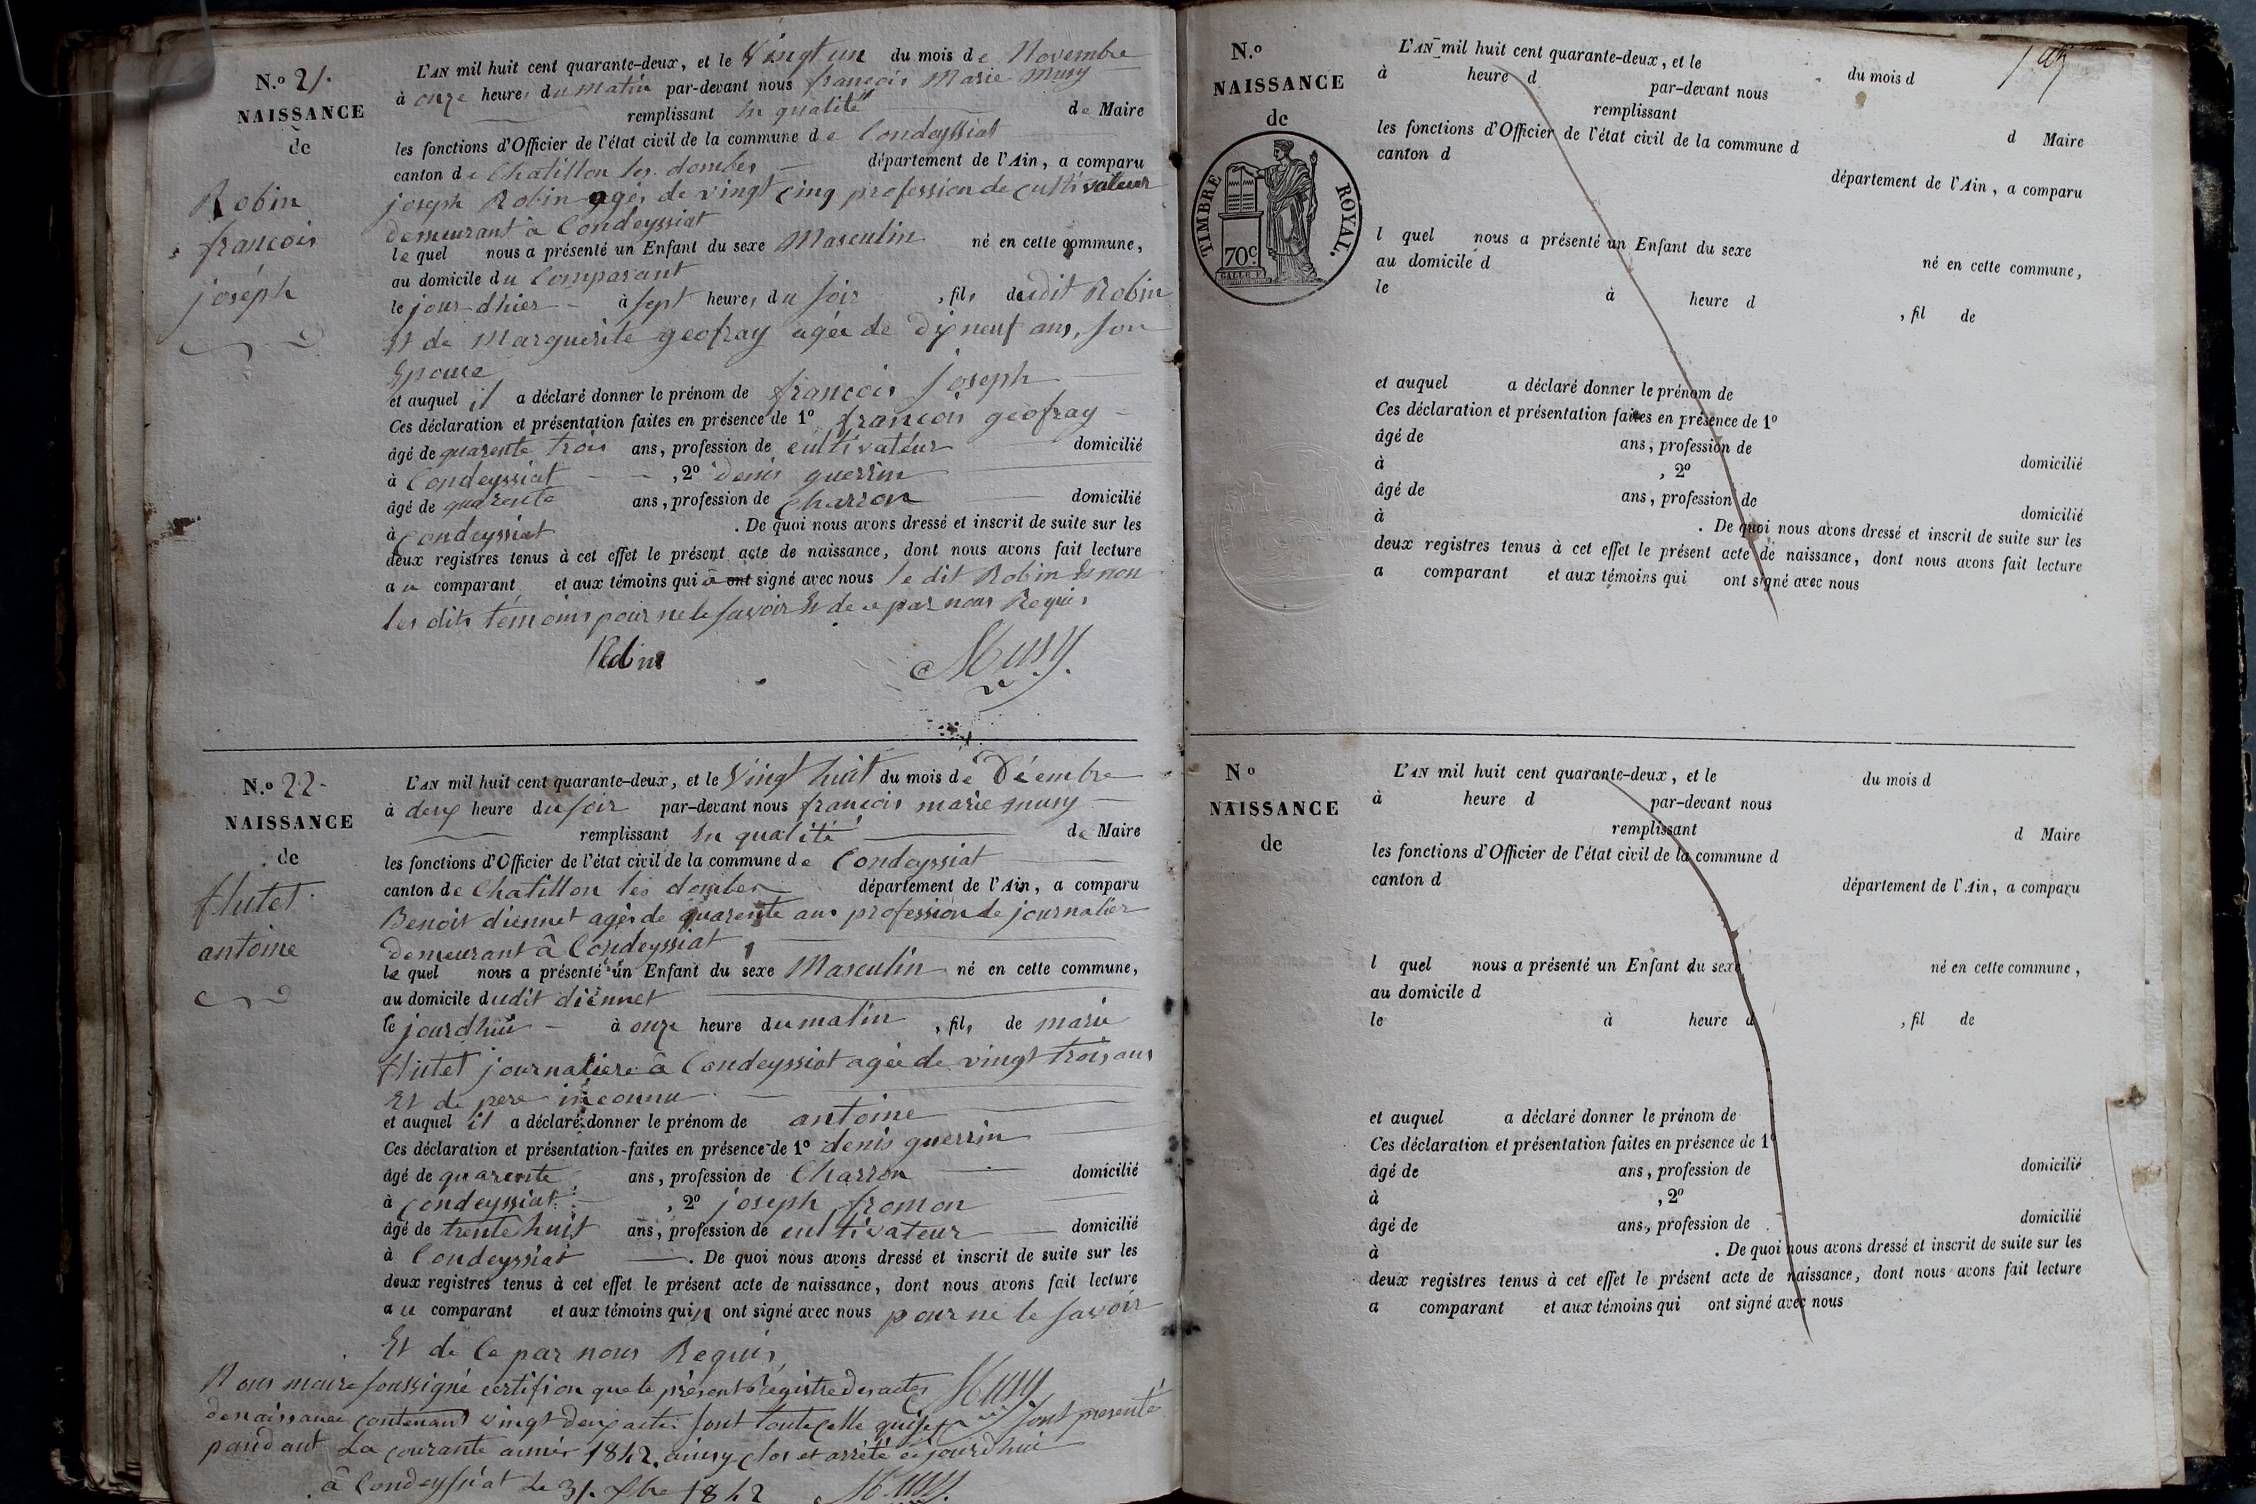 N.o 21.
NAISSANCE
de
Robin
françois
joséph
L'AN mil huit cent quarante-deux, et le Vingt un du mois de Novembre
à onze heures du matin par-devant nous françois Marie Musy
remplissant En qualité de Maire
les fonctions d'Officier de l'état civil de la commune de Condeyssiat
canton de Chatillon les dombes département de l'Ain, a comparu
joseph Robin agés de vingt cinq profession de cultivateur
demeurant à Condeyssiat
le quel nous a présenté un Enfant du sexe Masculin né en cette commune,
au domicile du Comparant
le jour dhier à sept heures du soir , fils dudit Robin
Et de Marguerite geofray agée de dixneuf ans, son
Epouse
et auquel il a déclaré donner le prénom de françois joseph
Ces déclaration et présentation faites en présence de 1o françois geofray
âgé de quarente trois ans, profession de cultivatéur domicilié
à Condeyssiat , 2o Denis guerrin
âgé de quarente ans, profession de Charron domicilié
à Condeyssiat . De quoi nous avons dressé et inscrit de suite sur les
deux registres tenus à cet effet le présent acte de naissance, dont nous avons fait lecture
au comparant et aux témoins qui a ont signé avec nous le dit Robin Et non
les dits témoins pour ne le savoir Et de ce par nous Requis
Robin
Musy
N.o 22
NAISSANCE
de
flutet
antoine
L'AN mil huit cent quarante-deux, et le Vingt huit du mois de Décembre
à deux heure du soir par-devant nous françois marie musy
remplissant En qualité de Maire
les fonctions d'Officier de l'état civil de la commune de Condeyssiat
canton de Chatillon les dombes département de l'Ain, a comparu
Benoit diennet agés de quarente ans profession de journalier
demeurant à Condeyssiat
le quel nous a présenté un Enfant du sexe Masculin né en cette commune,
au domicile dudit diennet
le jourdhui à onze heure du matin , fils de marie
flutet journaliere à Condeyssiat agée de vingt trois ans
Et de pere inconnu
et auquel il a déclaré donner le prénom de antoine
Ces déclaration et présentation faites en présence de 1o denis guerrin
âgé de quarente ans, profession de Charron domicilié
à Condeyssiat , 2o joseph fromon
âgé de trente huit ans, profession de cultivateur domicilié
à Condeyssiat . De quoi nous avons dressé et inscrit de suite sur les
deux registres tenus à cet effet le présent acte de naissance, dont nous avons fait lecture
au comparant et aux témoins qui n ont signé avec nous pour ne le savoir
Et de Ce par nous Requis
Musy
Nous maire soussigné certifion que le présent Régistre des actes
de naissance contenant vingt deux actes sont toute celle qui se sont presenté
pandant La courante année 1842, ainsy clos et arrété cejourdhui
à Condeyssiat le 31 Xbre 1842 Musy
N.o
NAISSANCE
de
TIMBRE ROYAL.
70c
L'AN mil huit cent quarante-deux, et le du mois d
à heure d par-devant nous
remplissant d Maire
les fonctions d'Officier de l'état civil de la commune d
canton d département de l'Ain, a comparu
l quel nous a présenté un Enfant du sexe né en cette commune,
au domicile d
le à heure d , fil de
et auquel a déclaré donner le prénom de
Ces déclaration et présentation faites en présence de 1o
âgé de ans, profession de domicilié
à , 2o
âgé de ans, profession de domicilié
à . De quoi nous avons dressé et inscrit de suite sur les
deux registres tenus à cet effet le présent acte de naissance, dont nous avons fait lecture
a comparant et aux témoins qui ont signé avec nous
No
NAISSANCE
de
L'AN mil huit cent quarante-deux, et le du mois d
à heure d par-devant nous
remplissant d Maire
les fonctions d'Officier de l'état civil de la commune d
canton d département de l'Ain, a comparu
l quel nous a présenté un Enfant du sexe né en cette commune,
au domicile d
le à heure d , fil de
et auquel a déclaré donner le prénom de
Ces déclaration et présentation faites en présence de 1o
âgé de ans, profession de domicilié
à , 2o
âgé de ans, profession de domicilié
à . De quoi nous avons dressé et inscrit de suite sur les
deux registres tenus à cet effet le présent acte de naissance, dont nous avons fait lecture
a comparant et aux témoins qui ont signé avec nous